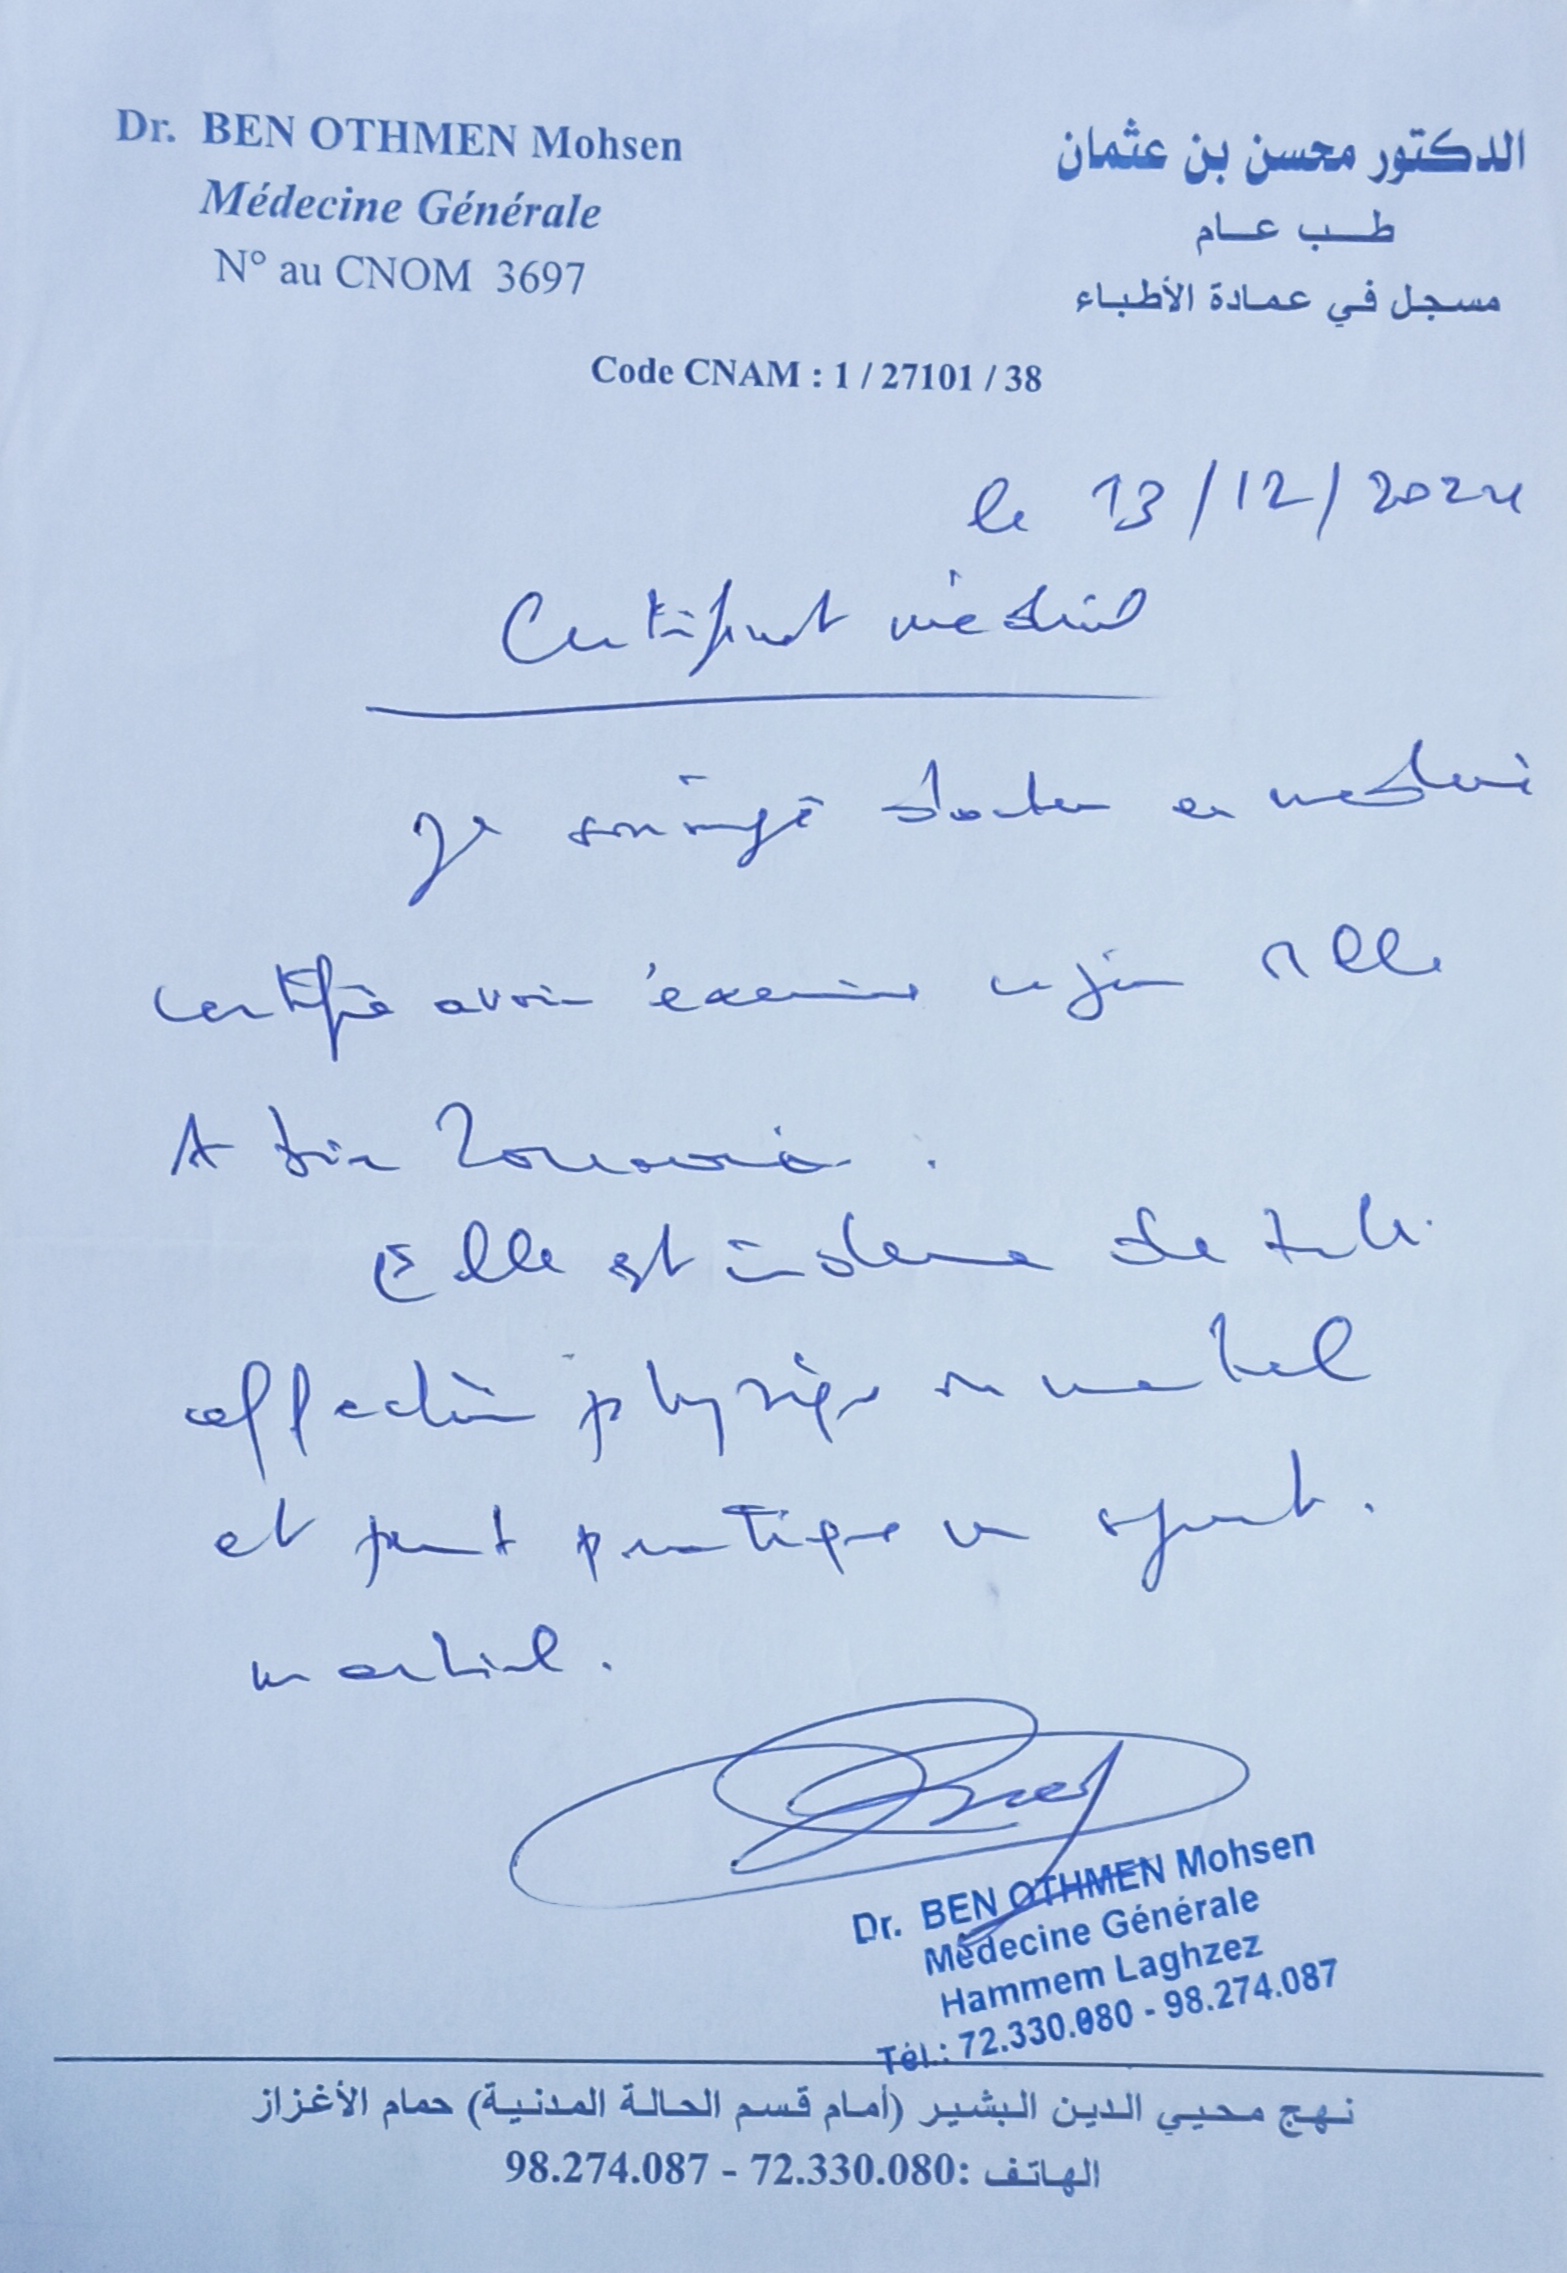 Dr. BEN OTHMEN Mohsen
Médecine Générale
N° au CNOM 3697
الدكتور محسن بن عثمان
طب عام
مسجل في عمادة الأطباء
Code CNAM : 1 / 27101 / 38
le 13/12/2024
Certificat médical
Je soussigné docteur en médecine
certifie avoir examiné ce jour Mlle
Elle est indemne de toute
affection physique ou mental
et peut pratiquer un sport
martial.
Dr. BEN OTHMEN Mohsen
Médecine Générale
Hammem Laghzez
Tél.: 72.330.080 - 98.274.087
نهج محيي الدين البشير (أمام قسم الحالة المدنية) حمام الأغزاز
الهاتف :72.330.080 - 98.274.087